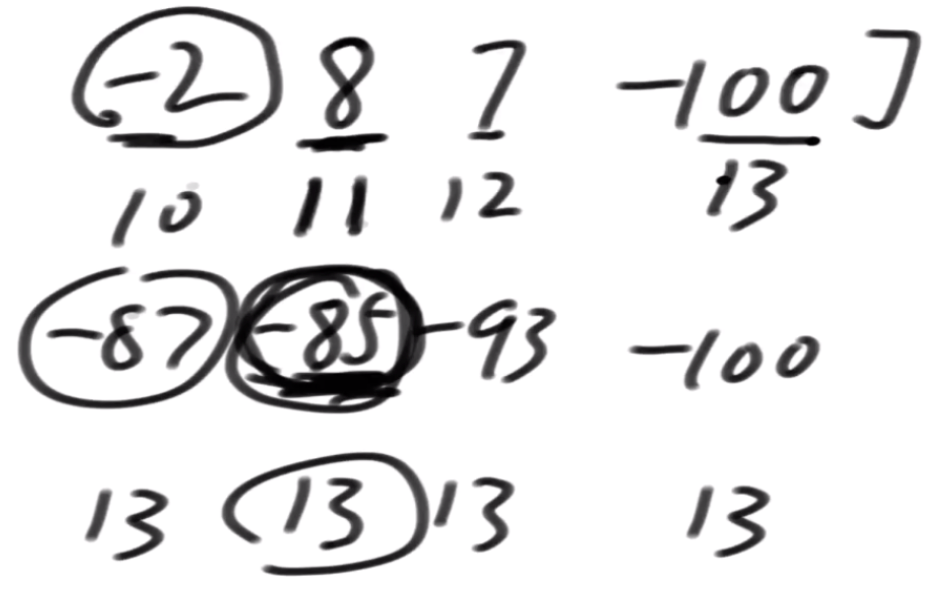 -2 8 7 -100]
10 11 12 13
-87 -85 -93 -100
13 13 13 13